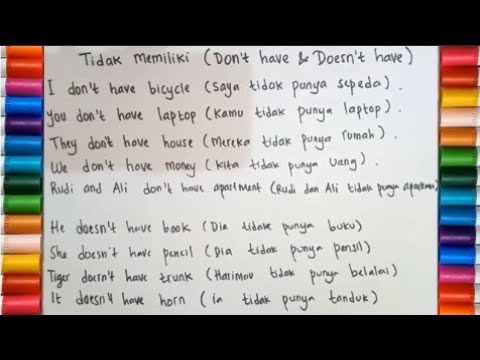 Tidak Memiliki (Don't have & Doesn't have)
I don't have bicycle (Saya tidak punya sepeda).
You don't have laptop (Kamu tidak punya laptop).
They don't have house (Mereka tidak punya rumah).
We don't have money (Kita tidak punya uang).
Rudi and Ali don't have apartment (Rudi dan Ali tidak punya apartemen)
He doesn't have book (Dia tidak punya buku)
She doesn't have pencil (Dia tidak punya pensil)
Tiger doesn't have trunk (Harimau tidak punya belalai)
It doesn't have horn (ia tidak punya tanduk)